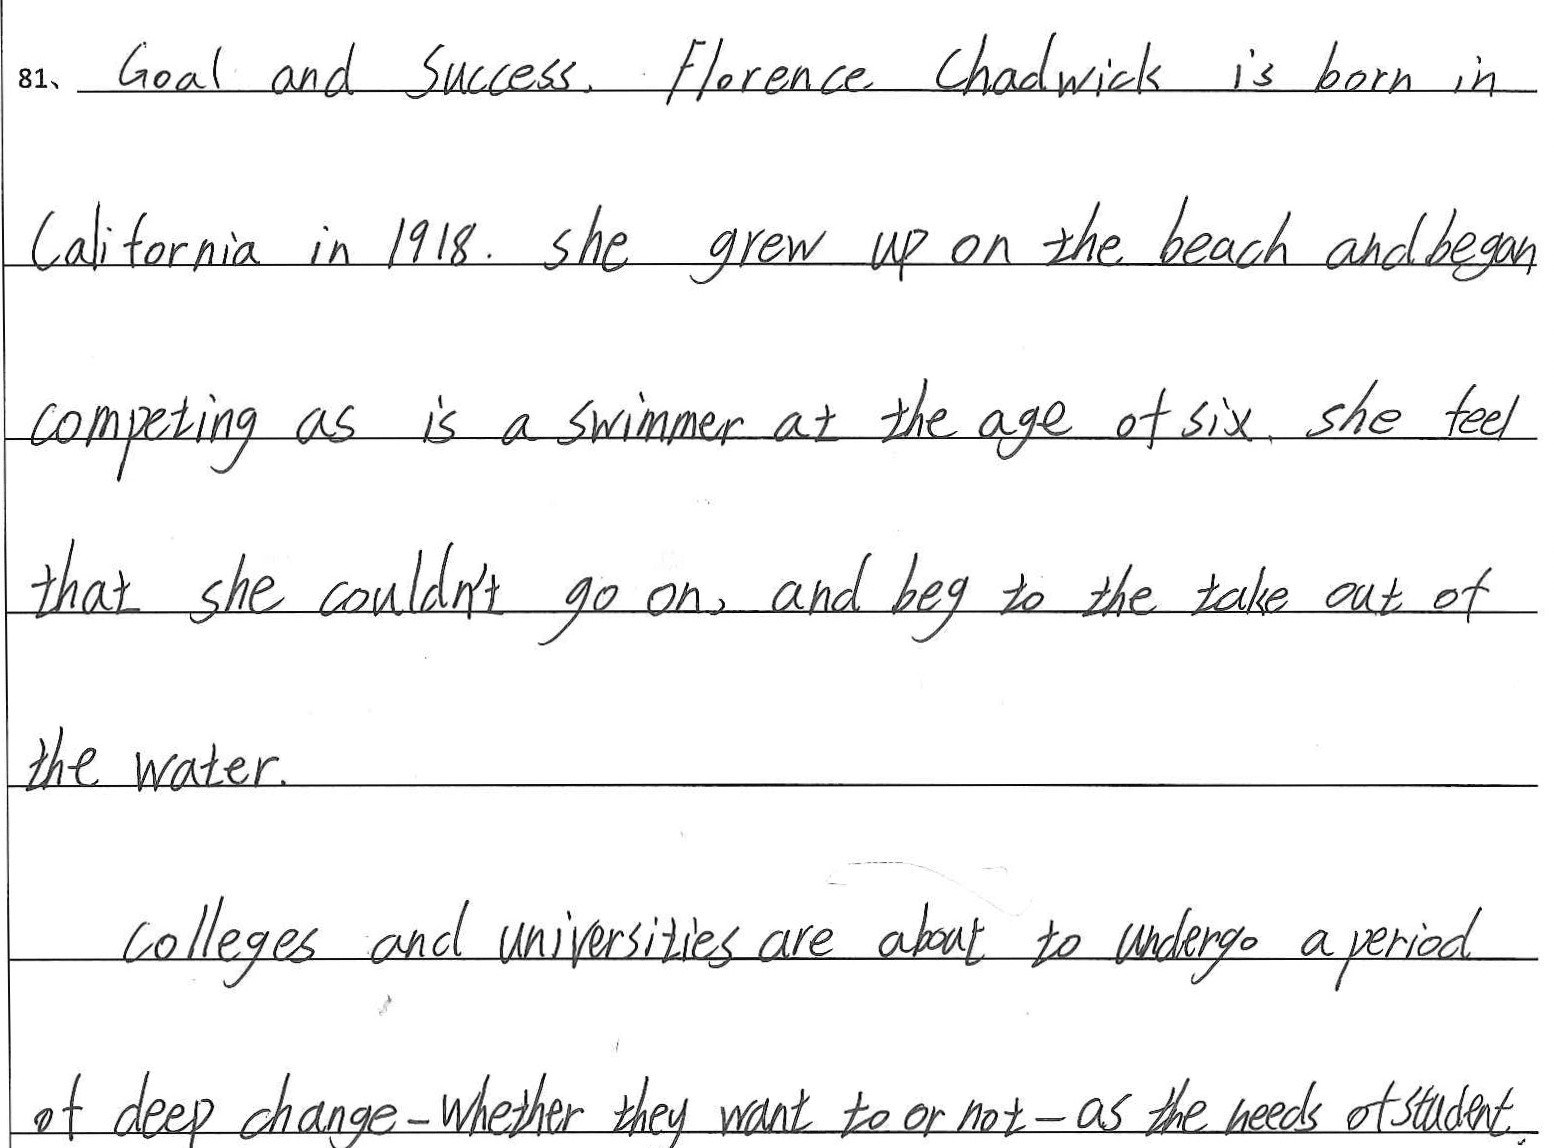 81、 Goal and Success. Florence Chadwick is born in
California in 1918. she grew up on the beach and began
competing as is a swimmer at the age of six. she feel
that she couldn't go on, and beg to the take out of
the water.
colleges and universities are about to undergo a period
of deep change-whether they want to or not-as the needs of student.